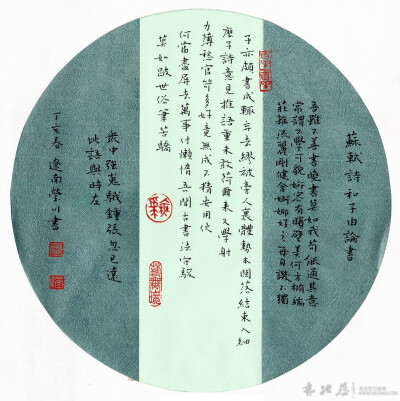 蘇軾詩和子由論書
吾雖不善書曉書莫如我苟能通其意
常謂不學可貌妍容有矉璧美何妨橢端
莊雜流麗剛健含婀娜好之每自譏不獨
子亦頗書成輒棄去謬被旁人裹體勢本闊落結束入細
麼子詩意見推語重未敢荷爾來又學射
力薄愁官笴多好竟無成不精安用夥
何當盡屏去萬事付懶惰吾聞古書法守駿
莫如跛世俗筆苦驕
衆中強嵬騀鍾張忽已遠
此語與時左
丁亥春 遼南瑩川書